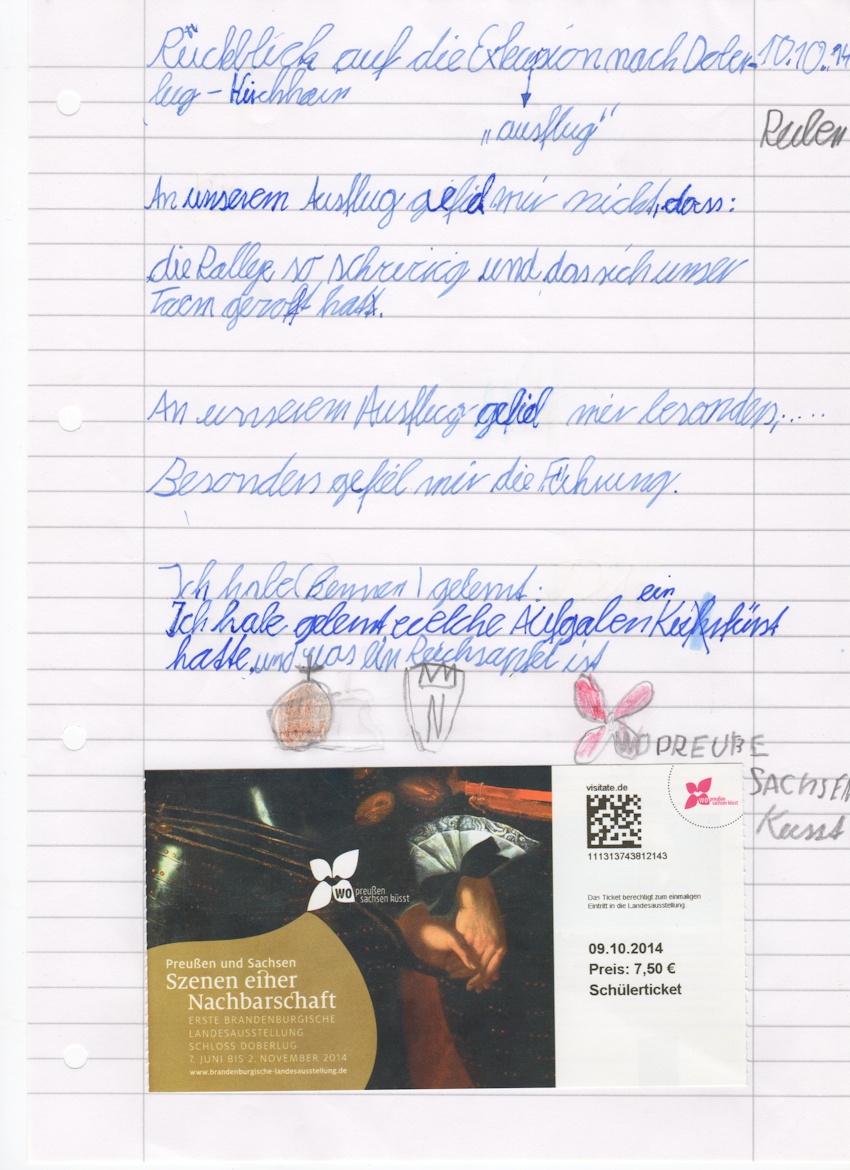 Rückblick auf die Exkursion nach Dober- 10.10.14
lug – Kirchhain
„ausflug"
Ruben
An unserem Ausflug gefiel mir nicht, dass:
die Ralley so schwirig und das sich unser
Taem geroft hatt.
An unserem Ausflug gefiel mir besonders,.....
Besonders gefiel mir die Führung.
Ich habe (Bennen) gelernt:
ein
Ich habe gelernt welche Aufgaben Kurfürst
hatte, und was ein Reichsapfel ist
WO PREUßE
SACHSEN
Küsst
visitate.de
111313743812143
wo preußen
sachsen küsst
Das Ticket berechtigt zum einmaligen
Eintritt in die Landesausstellung.
09.10.2014
Preis: 7,50 €
Schülerticket
wo preußen
sachsen küsst
Preußen und Sachsen
Szenen einer
Nachbarschaft
ERSTE BRANDENBURGISCHE
LANDESAUSSTELLUNG
SCHLOSS DOBERLUG
7. JUNI BIS 2. NOVEMBER 2014
www.brandenburgische-landesausstellung.de